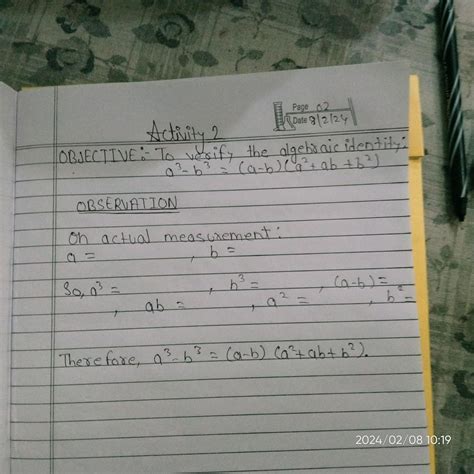 Page 02
Date 8/2/24
Activity 2
OBJECTIVE:- To verify the algebraic identity:
a³-b³ = (a-b)(a²+ab+b²)
OBSERVATION
On actual measurement:
a = , b =
So, a³ = , b³ = , (a-b) =
, ab = , a² = , b² =
Therefore, a³-b³ = (a-b) (a²+ab+b²).
2024/02/08 10:19